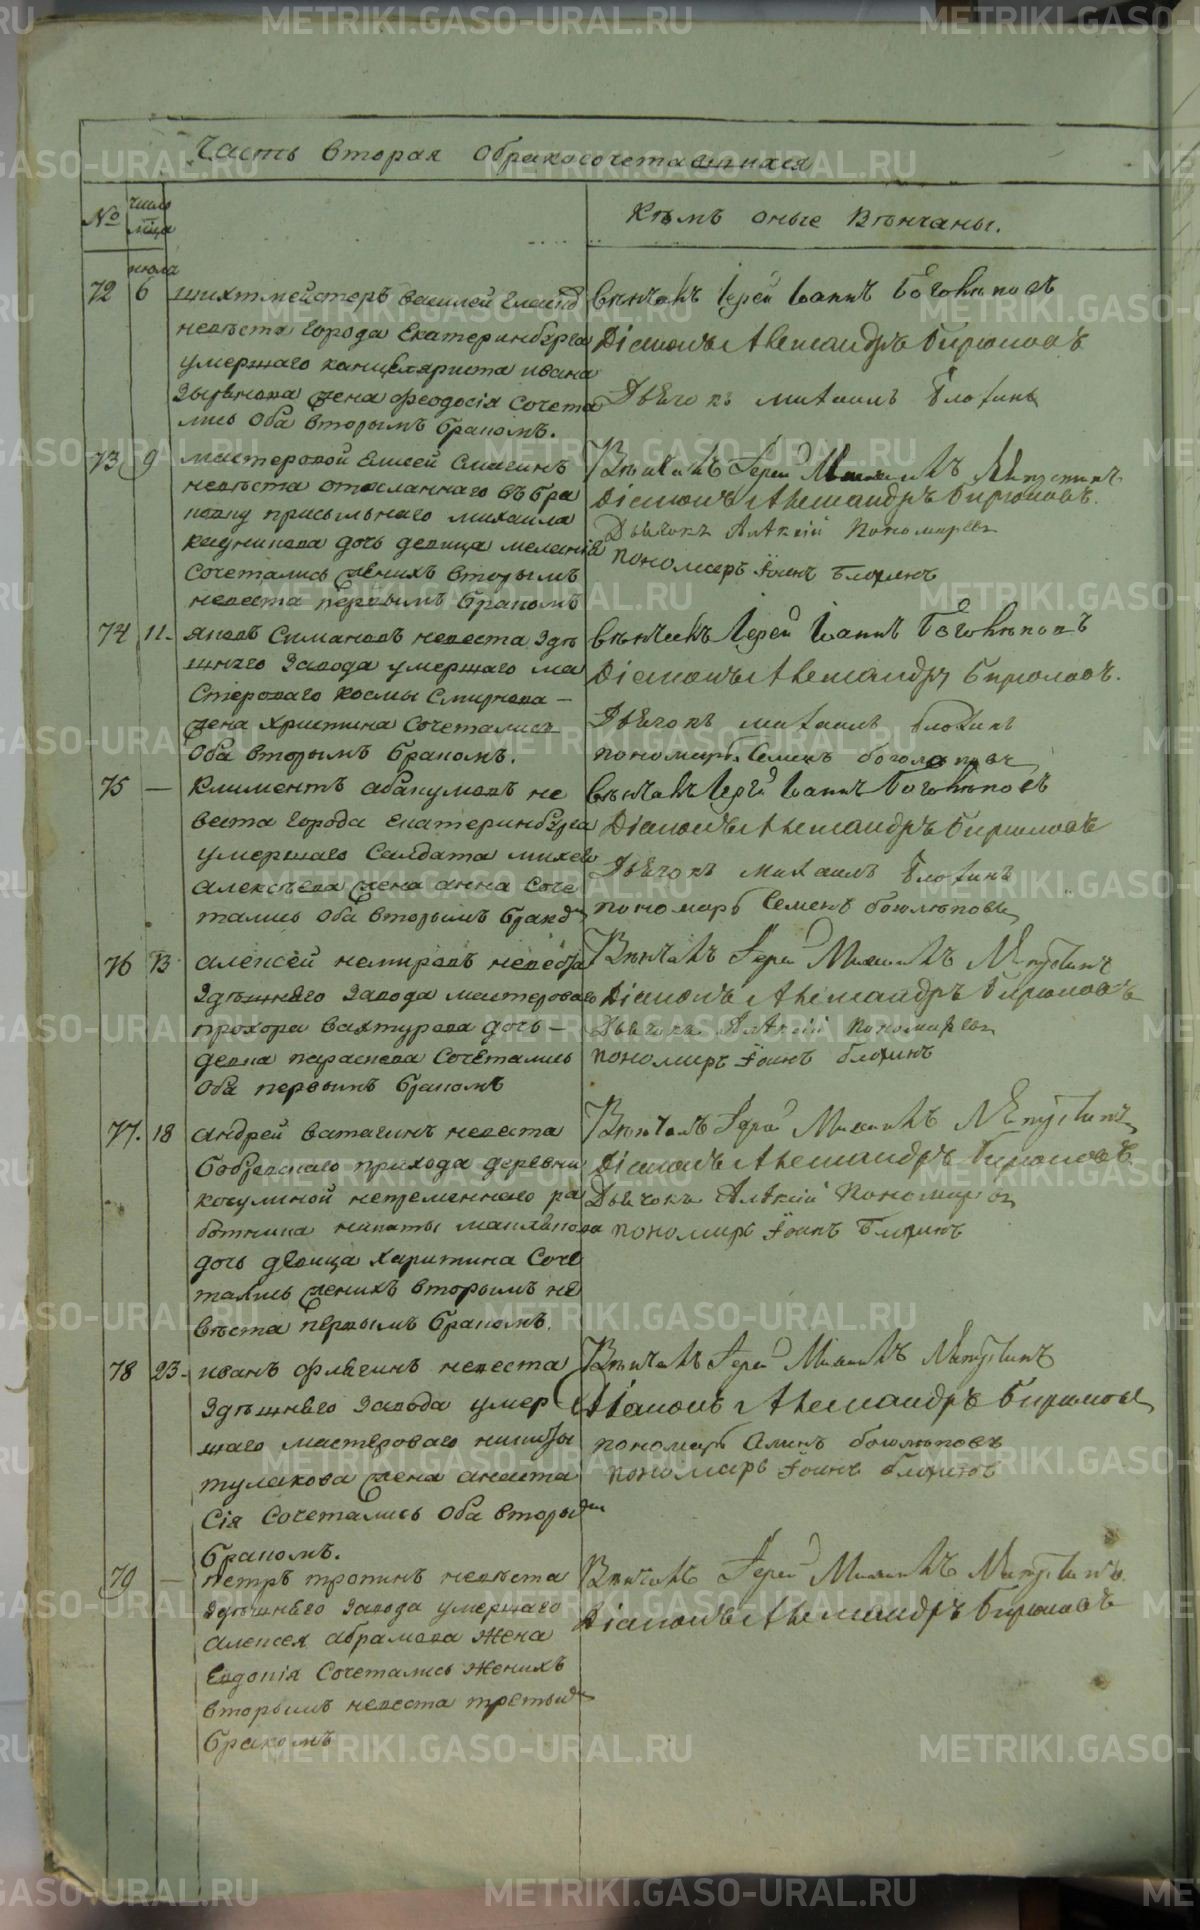 Часть вторая обракосочетавшихся
№
число
мца
Кѣмъ оные Вѣнчаны.
июля
72 6 шихтмейстеръ василей
невѣста города Екатеринбурга
умершаго канцеляриста ивана
жена феодосія сочета
лись оба вторымъ бракомъ.
вѣнчалъ Іерей Іоаннъ Боголѣповъ
Діаконъ Александръ Бирюковъ
Дьячокъ михаилъ Блохинъ
73 9 мастеровой Елисей Смагинъ
невѣста отосланнаго въ
присыльнаго михаила
дочь девица меланія
сочетались женихъ вторымъ
невеста первымъ бракомъ
Вѣнчалъ Іерей Михаилъ
Діаконъ Александръ Бирюковъ.
Дьячокъ Алѣксій Пономаревъ
пономарь Іоанъ Блохинъ
74 11. яковъ Симановъ невеста здѣ
шнего завода умершаго ма
стероваго космы Смирнова
жена христина сочетались
оба вторымъ бракомъ.
вѣнчалъ Іерей Іоаннъ Боголѣповъ
Діаконъ Александръ Бирюковъ.
Дьячокъ михаилъ блохинъ
пономарь Семенъ боголѣповъ
75 — климентъ абакумовъ не
веста города екатеринбурга
умершаго салдата михея
алексѣева жена анна соче
тались оба вторымъ
вѣнчалъ Іерей Іоаннъ Боголѣповъ
Діаконъ Александръ Бирюковъ
Дьячокъ михаилъ Блохинъ
пономарь Семенъ боголѣповъ
76 13 алексей немировъ невеста
здѣшнего завода мастероваго
прохора вахтурова дочь —
девка параскева сочетались
оба первымъ бракомъ
Вѣнчалъ Іерей Михаилъ
Діаконъ Александръ Бирюковъ
Дьячокъ Алѣксій пономаревъ
пономарь Іоанъ блохинъ
77. 18 андрей ватагинъ невеста
прихода деревни
непременнаго ра
ботника никиты
дочь девица харитина соче
тались женихъ вторымъ не
вѣста первымъ бракомъ.
Вѣнчалъ Іерей Михаилъ
Діаконъ Александръ Бирюковъ
Дьячокъ Алѣксій Пономаревъ
пономарь Іоанъ Блохинъ
78 23. иванъ флягинъ невеста
здѣшнего завода умер
шаго мастероваго никиты
тулакова жена анаста
сія сочетались оба вторым
бракомъ.
Вѣнчалъ Іерей Михаилъ
Діаконъ Александръ Бирюковъ
пономарь Семенъ боголѣповъ
пономарь Іоанъ блохинъ
79 — петръ тропинъ невѣста
здѣшнего завода умершаго
алексея абрамова жена
Евдокія сочетались женихъ
вторымъ невеста третьим
бракомъ
Вѣнчалъ Іерей Михаилъ
Діаконъ Александръ Бирюковъ
METRIKI.GASO-URAL.RU